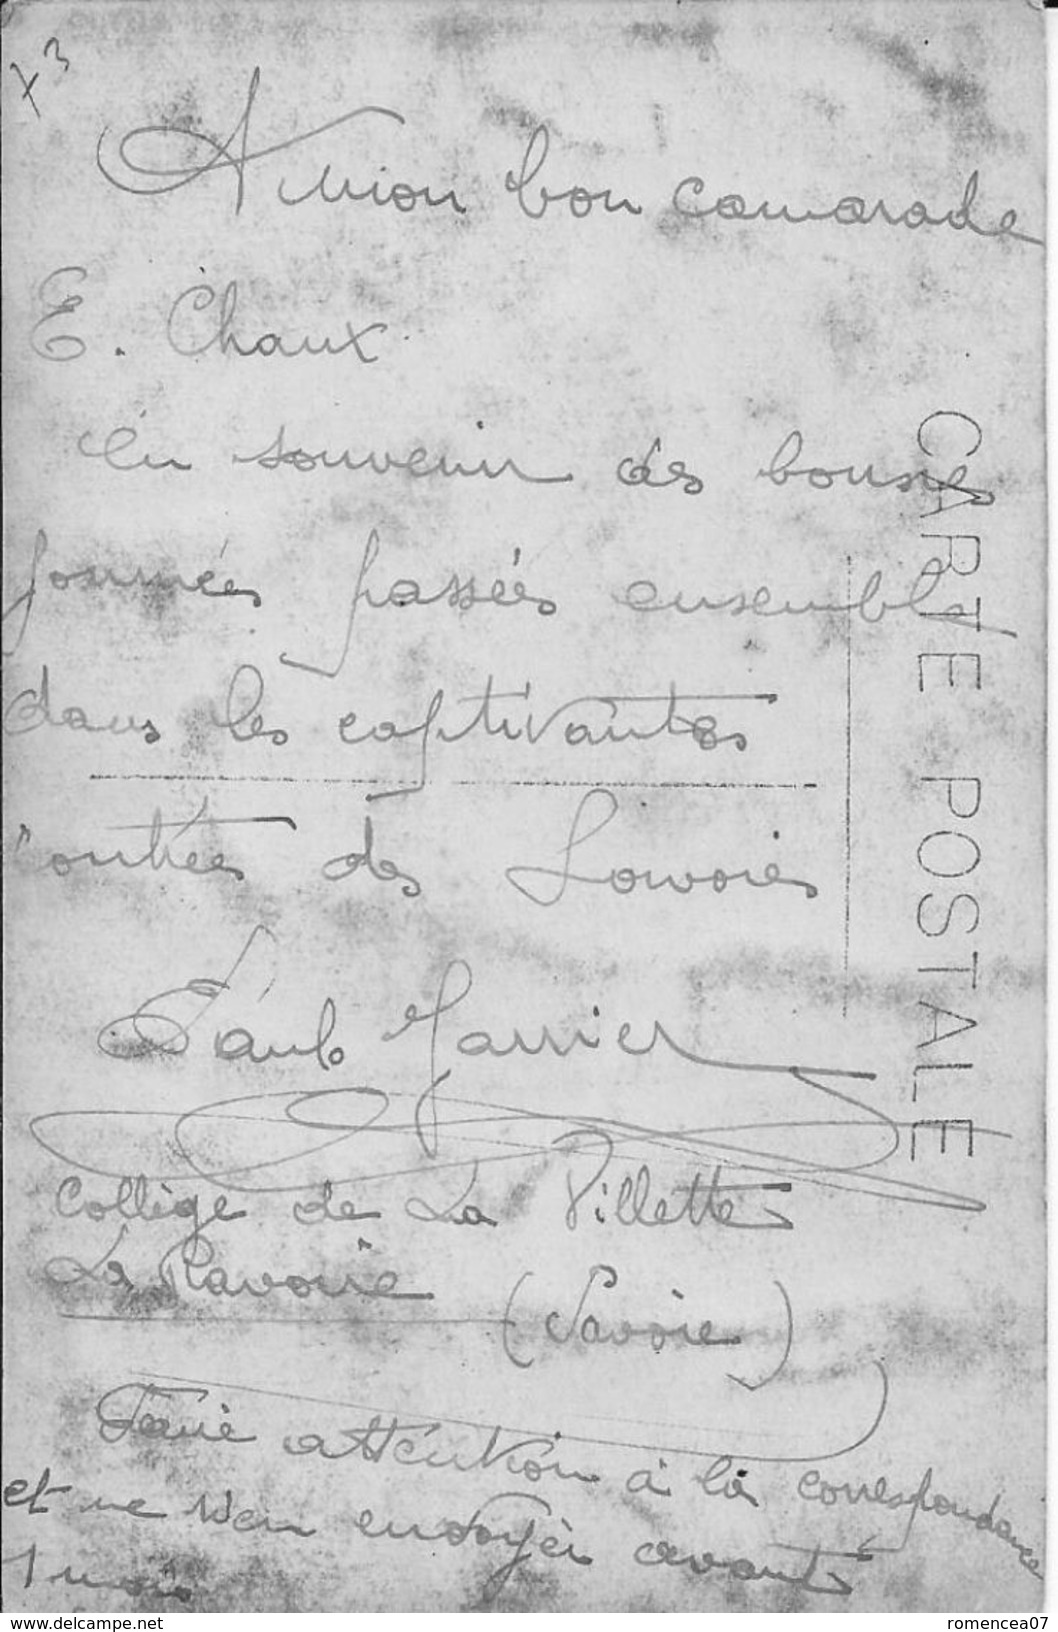 73
A mon bon camarade
E. Chaux
en souvenir des bonnes
journées passées ensemble
dans les captivantes
contrées des Savoies
Paul
Collège de La Villette
La Ravoire
(Savoie)
Faire attention à la correspondance
et ne rien envoyer avant
1 mois
CARTE POSTALE
www.delcampe.net
romencea07